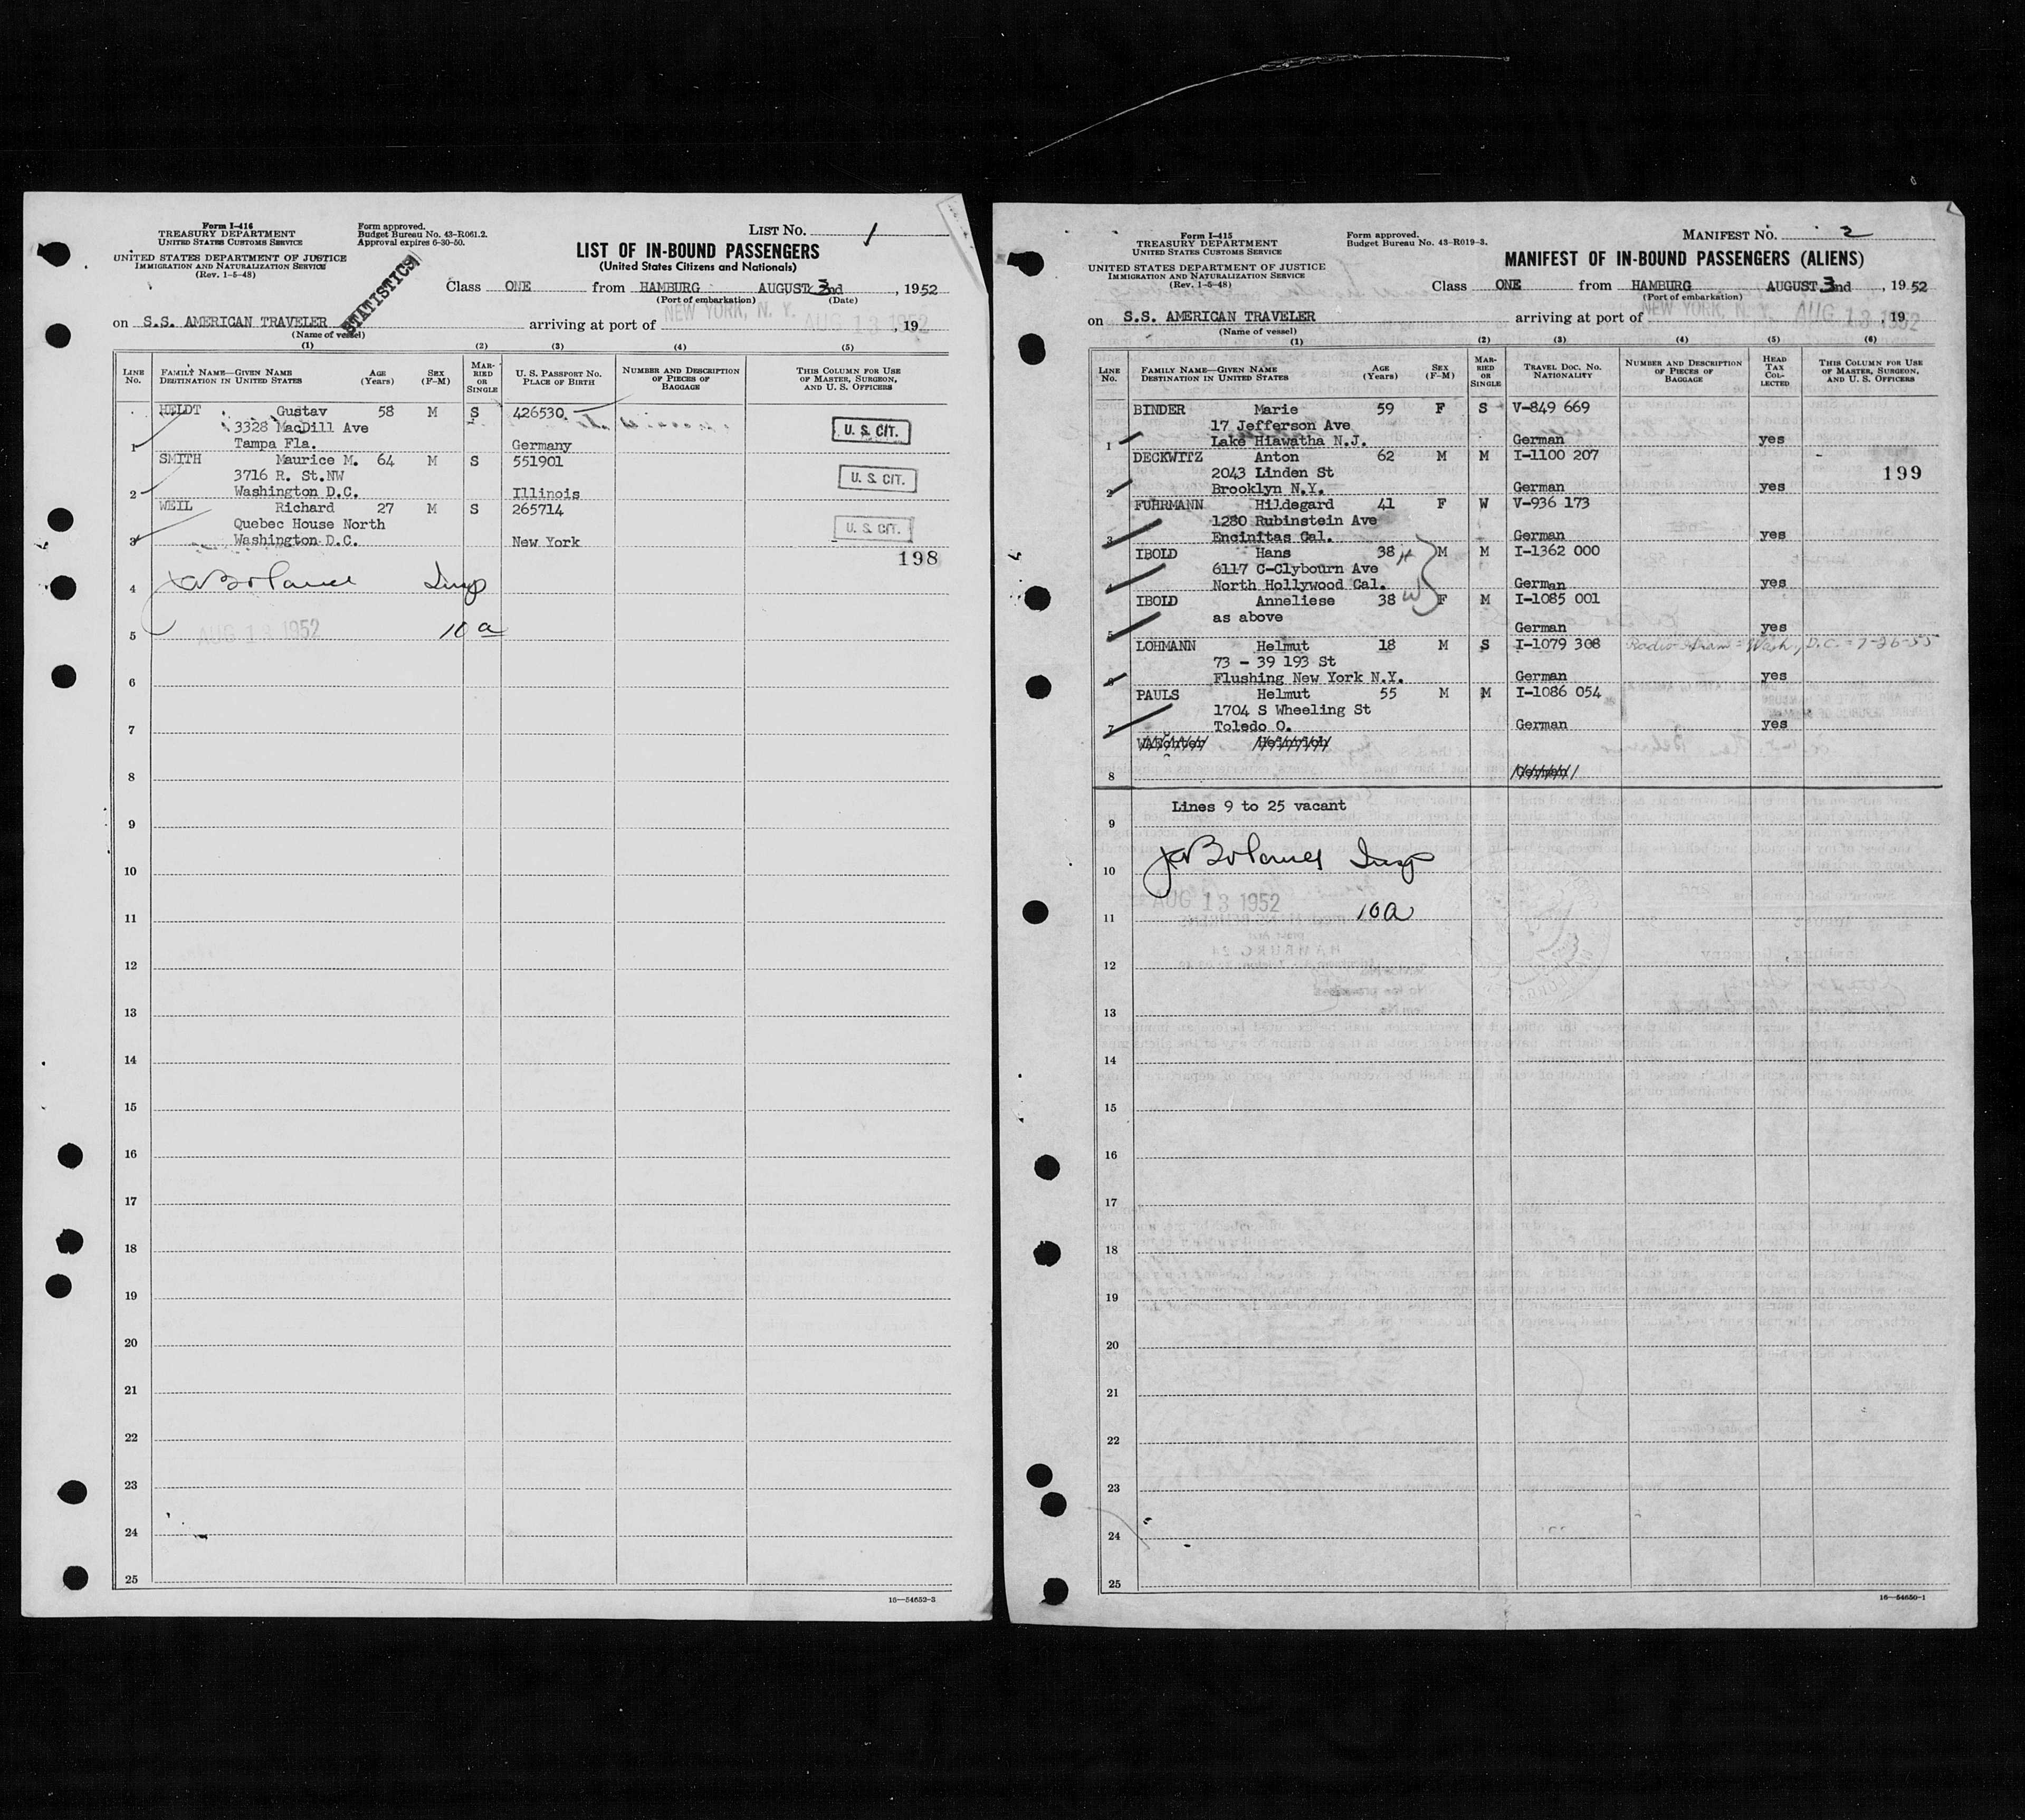 Form I-416
TREASURY DEPARTMENT
UNITED STATES CUSTOMS SERVICE
UNITED STATES DEPARTMENT OF JUSTICE
IMMIGRATION AND NATURALIZATION SERVICE
(Rev. 1-5-48)
Form approved.
Budget Bureau No. 43-R061.2.
Approval expires 6-30-50.
STATISTICS
LIST NO. 1
LIST OF IN-BOUND PASSENGERS
(United States Citizens and Nationals)
Class ONE from HAMBURG AUGUST 3nd, 1952
(Port of embarkation) (Date)
on S.S. AMERICAN TRAVELER arriving at port of NEW YORK, N. Y. AUG 13 1952, 19
(Name of vessel)
(1) (2) (3) (4) (5)
LINE No. FAMILY NAME—GIVEN NAME DESTINATION IN UNITED STATES AGE (Years) SEX (F-M) MARRIED OR SINGLE U. S. PASSPORT NO. PLACE OF BIRTH NUMBER AND DESCRIPTION OF PIECES OF BAGGAGE THIS COLUMN FOR USE OF MASTER, SURGEON, AND U. S. OFFICERS
HELDT Gustav 58 M S 426530
3328 MacDill Ave U. S. CIT.
1 Tampa Fla. Germany
SMITH Maurice M. 64 M S 551901
3716 R. St.NW U. S. CIT.
2 Washington D.C. Illinois
WEIL Richard 27 M S 265714
Quebec House North U. S. CIT.
3 Washington D.C. New York
198
4 Insp
5 AUG 13 1952 10 a
6
7
8
9
10
11
12
13
14
15
16
17
18
19
20
21
22
23
24
25
16—54652-3
Form I-415
TREASURY DEPARTMENT
UNITED STATES CUSTOMS SERVICE
UNITED STATES DEPARTMENT OF JUSTICE
IMMIGRATION AND NATURALIZATION SERVICE
(Rev. 1-5-48)
Form approved.
Budget Bureau No. 43-R019-3.
MANIFEST NO. 2
MANIFEST OF IN-BOUND PASSENGERS (ALIENS)
Class ONE from HAMBURG AUGUST 3nd, 1952
(Port of embarkation)
on S.S. AMERICAN TRAVELER arriving at port of NEW YORK, N. Y. AUG 13 1952, 19
(Name of vessel)
(1) (2) (3) (4) (5) (6)
LINE No. FAMILY NAME—GIVEN NAME DESTINATION IN UNITED STATES AGE (Years) SEX (F-M) MARRIED OR SINGLE TRAVEL DOC. NO. NATIONALITY NUMBER AND DESCRIPTION OF PIECES OF BAGGAGE HEAD TAX COLLECTED THIS COLUMN FOR USE OF MASTER, SURGEON, AND U. S. OFFICERS
BINDER Marie 59 F S V-849 669
17 Jefferson Ave
1 Lake Hiawatha N.J. German yes
DECKWITZ Anton 62 M M I-1100 207
2043 Linden St 199
2 Brooklyn N.Y. German yes
FUHRMANN Hildegard 41 F W V-936 173
1280 Rubinstein Ave
3 Encinitas Cal. German yes
IBOLD Hans 38 H M M I-1362 000
6117 C-Clybourn Ave
4 North Hollywood Cal. German yes
IBOLD Anneliese 38 W F M I-1085 001
as above
5 German yes
LOHMANN Helmut 18 M S I-1079 308 Wash, D.C. - 7-26-55
73 - 39 193 St
6 Flushing New York N.Y. German yes
PAULS Helmut 55 M M I-1086 054
1704 S Wheeling St
7 Toledo O. German yes
Heinrich
8 German
Lines 9 to 25 vacant
9
10 Insp
AUG 13 1952
11 10a
12
13
14
15
16
17
18
19
20
21
22
23
24
25
16—54650-1